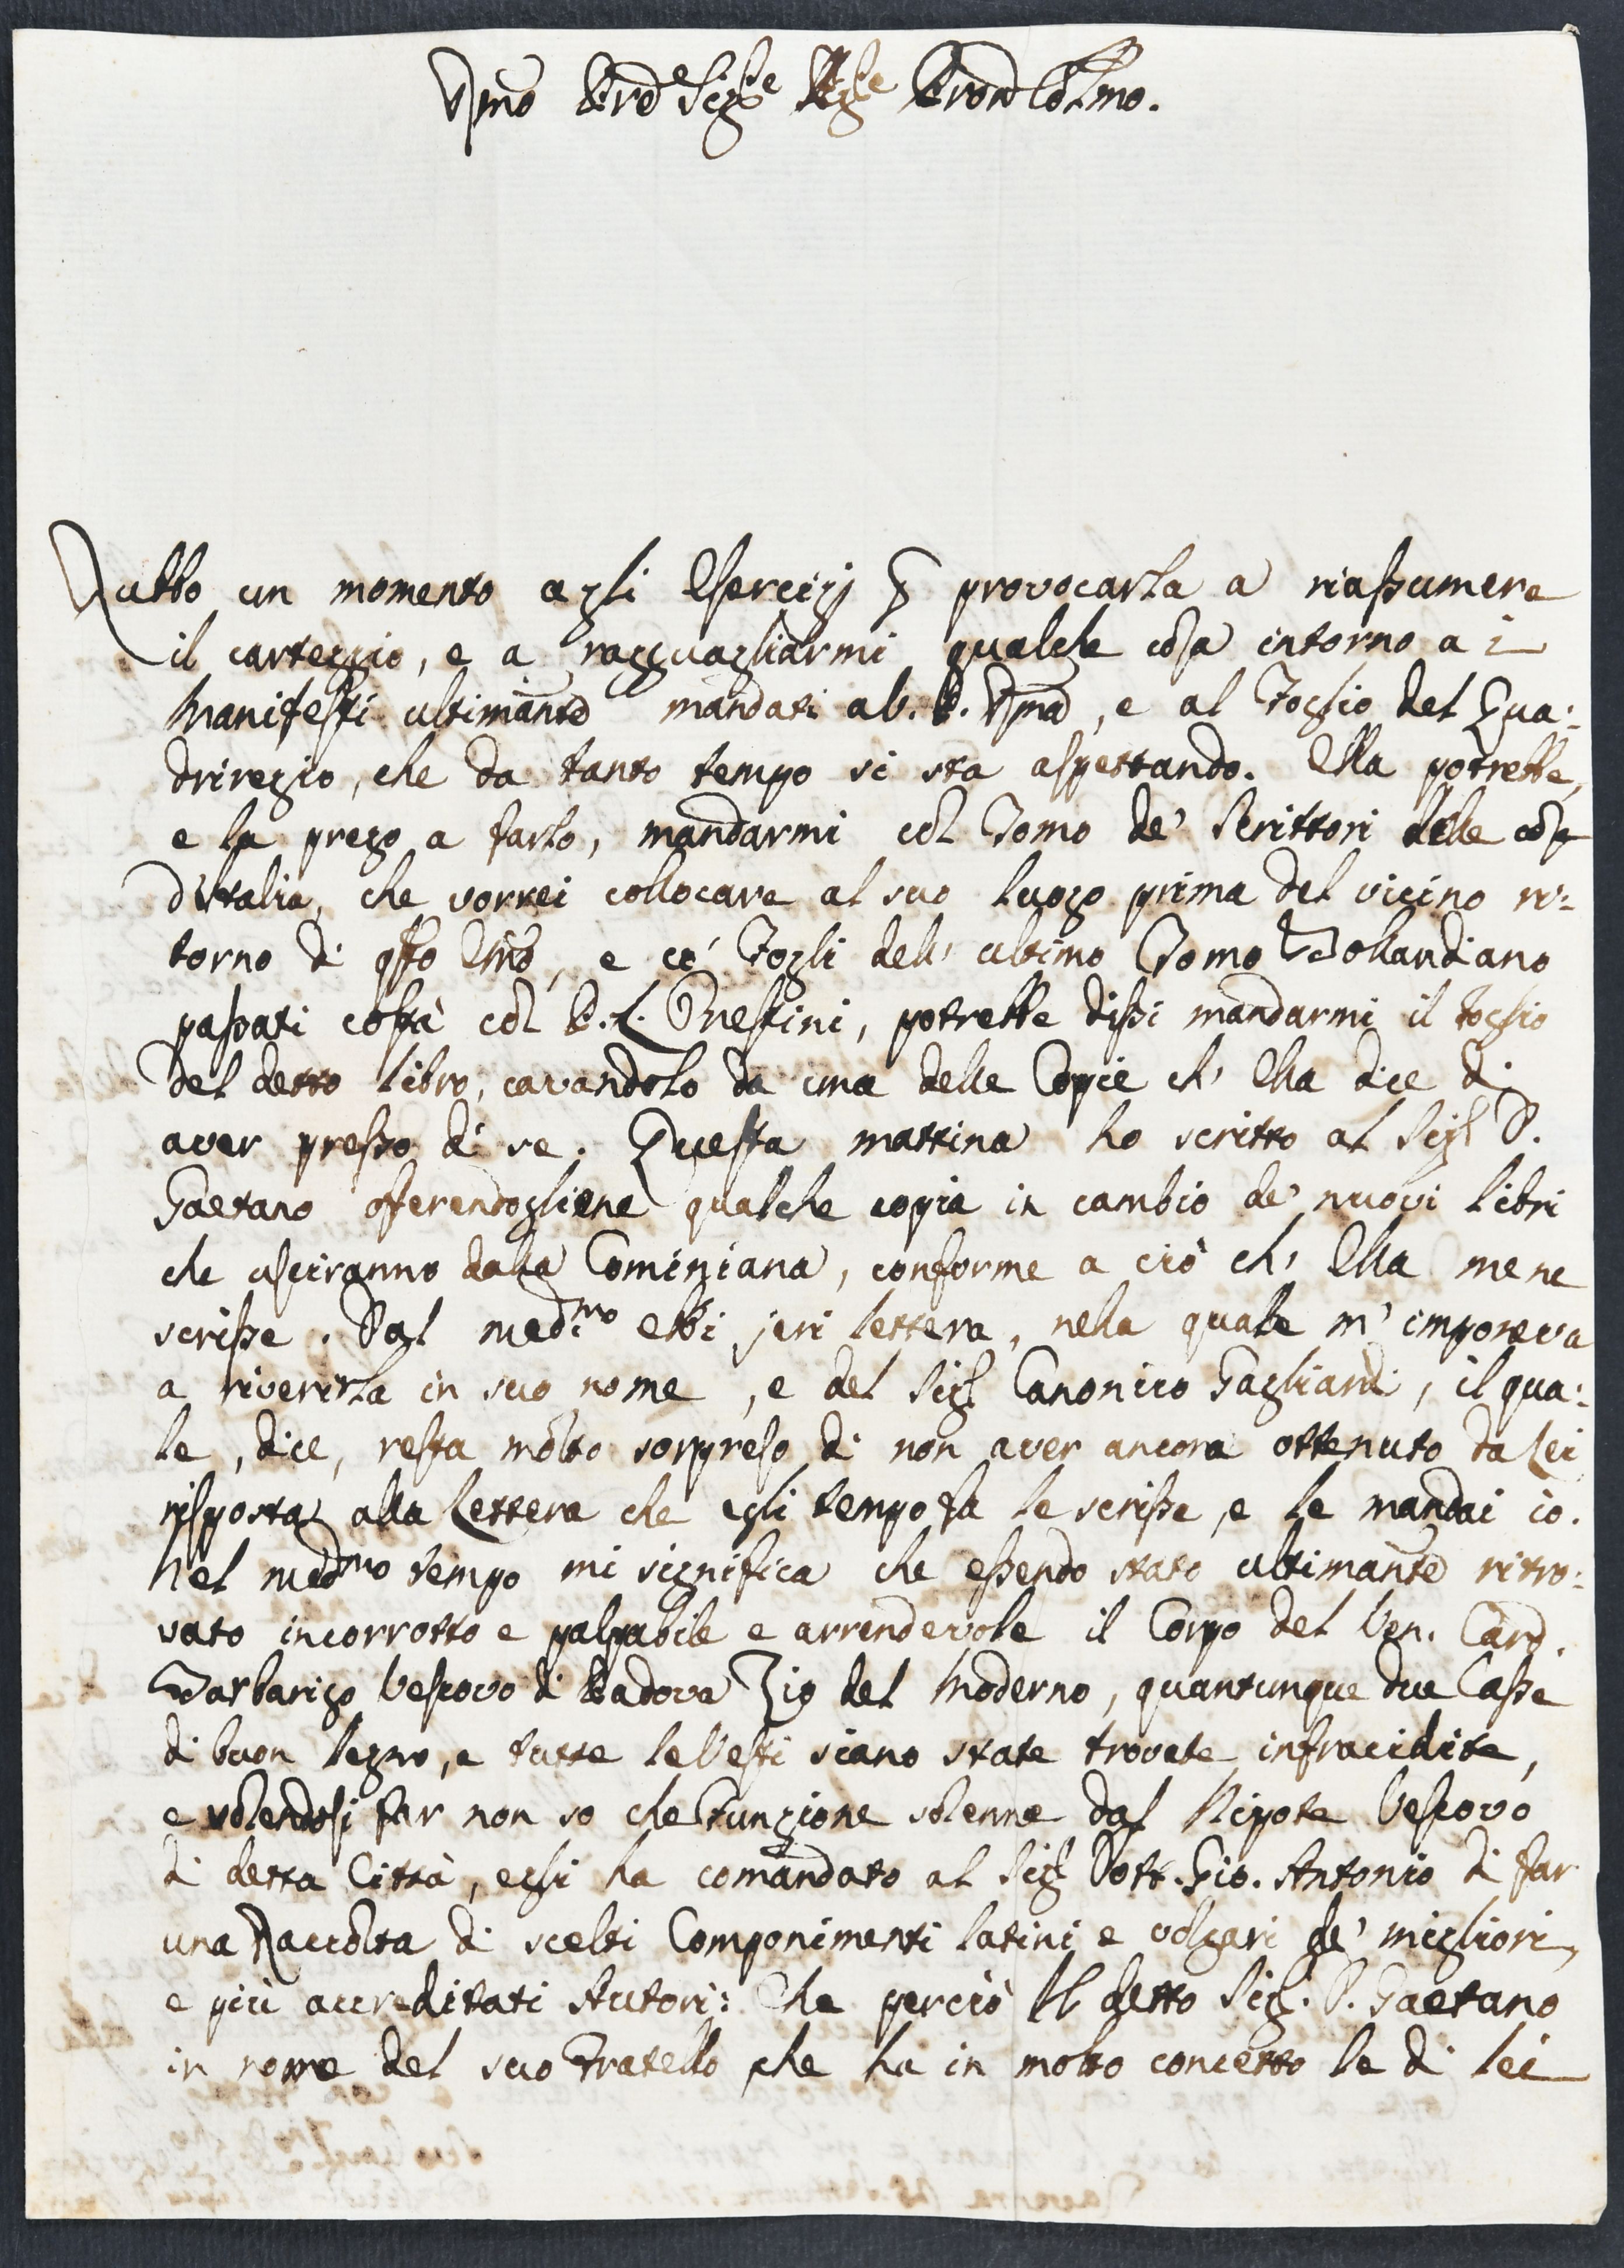 Rmo Prõ Sigre Sigre Pron Colmo.
Rubbo un momento agli Esercizj p provocarla a riassumere
il carteggio, e a ragguagliarmi qualche cosa intorno a i
Manifesti ultimamte mandati a V. P. Rma, e al Foglio del Qua:
driregio, che da tanto tempo si sta aspettando. Ella potrebbe,
e la prego a farlo, mandarmi col Tomo de' Scrittori delle cose
d'Italia, che vorrei collocare al suo luogo prima del vicino ri:
torno di qsto Emo, e co' Fogli dell' ultimo Tomo Bollandiano
passati costà col P. L. Onestini, potrebbe dissi mandarmi il foglio
del detto libro, cavandolo da una delle Copie ch' Ella dice di
aver presso di se. Questa mattina ho scritto al Sigr D.
Gaetano offerendogliene qualche copia in cambio de' nuovi libri
che usciranno dalla Cominiana, conforme a ciò ch' Ella mene
scrisse. Dal medimo ebbi jeri lettera, nella quale m' imponeva
a riverirla in suo nome, e del Sigr Canonico Gagliardi, il qua:
le, dice, resta molto sorpreso di non aver ancora ottenuto da Lei
risposta alla Lettera che egli tempo fa le scrisse, e le mandai io.
Nel medmo tempo mi significa che essendo stato ultimamte ritro:
vato incorrotto e palpabile e arrendevole il Corpo del Ven. Card.
Barbarigo Vescovo di Padova Zio del Moderno, quantunque due Casse
di buon legno, e tutte le Vesti siano state trovate infracidite,
e volendosi far non so che Funzione solenne dal Nipote Vescovo
di detta Città, egli ha comandato al Sigr Dott. Gio. Antonio di far
una Raccolta di scelti Componimenti latini e volgari de' migliori,
e più accreditati Autori: Che perciò Il detto Sig. D. Gaetano
in nome del suo Fratello che ha in molto concetto le di lei